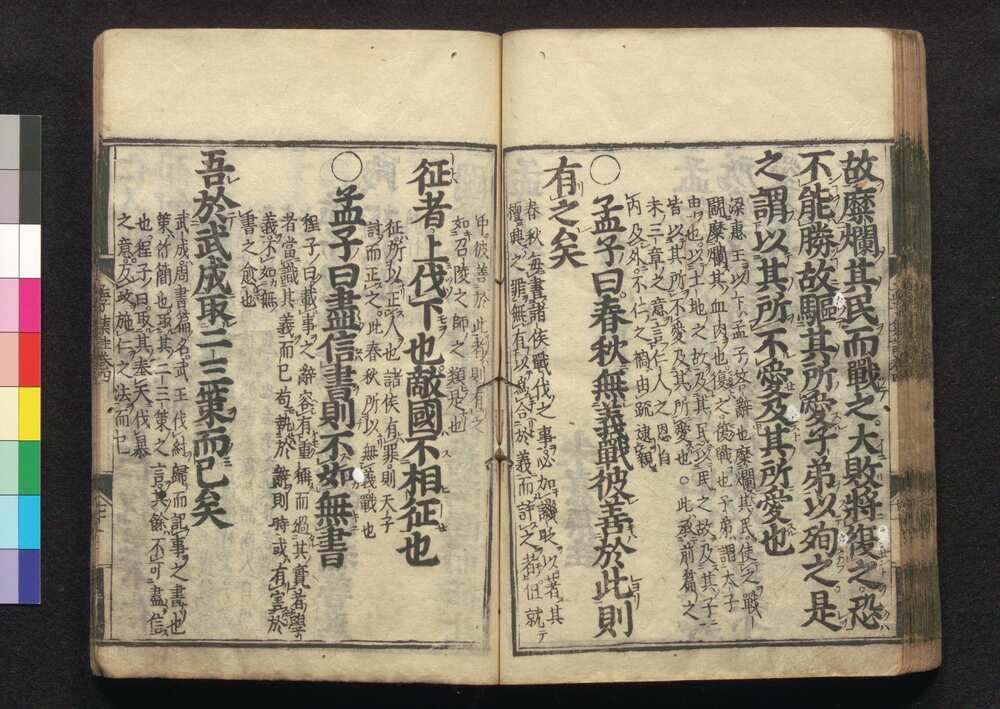 故糜爛其民而戰之大敗將復之恐
不能勝故驅其所愛子弟以殉之是
之謂以其所不愛及其所愛也
梁惠王以下孟子答辭也糜爛其民使之戰
鬪糜爛其血肉也復之復戰也子弟謂太子
也以土地之故及其民以民之故及其子
皆以其所不愛及其所愛也此承前篇之
末三章之意言仁人之恩自
內及外不仁之禍由疏逮親
○孟子曰春秋無義戰彼善於此則
有之矣
春秋每書諸侯戰伐之事必加譏貶以著其
擅興之罪無有以爲合於義而許之者但就
中彼善於此者則有之
如召陵之師之類是也
征者上伐下也敵國不相征也
征所以正人也諸侯有罪則天子
討而正之此春秋所以無義戰也
○孟子曰盡信書則不如無書
程子曰載事之辭容有重稱而過其實者學
者當識其義而已苟執於辭則時或有害於
義不如無
書之愈也
吾於武成取二三策而已矣
武成周書篇名武王伐紂歸而記事之書也
策竹簡也取其二三策之言其餘不可盡信
也程子曰取其奉天伐暴
之意反政施仁之法而已